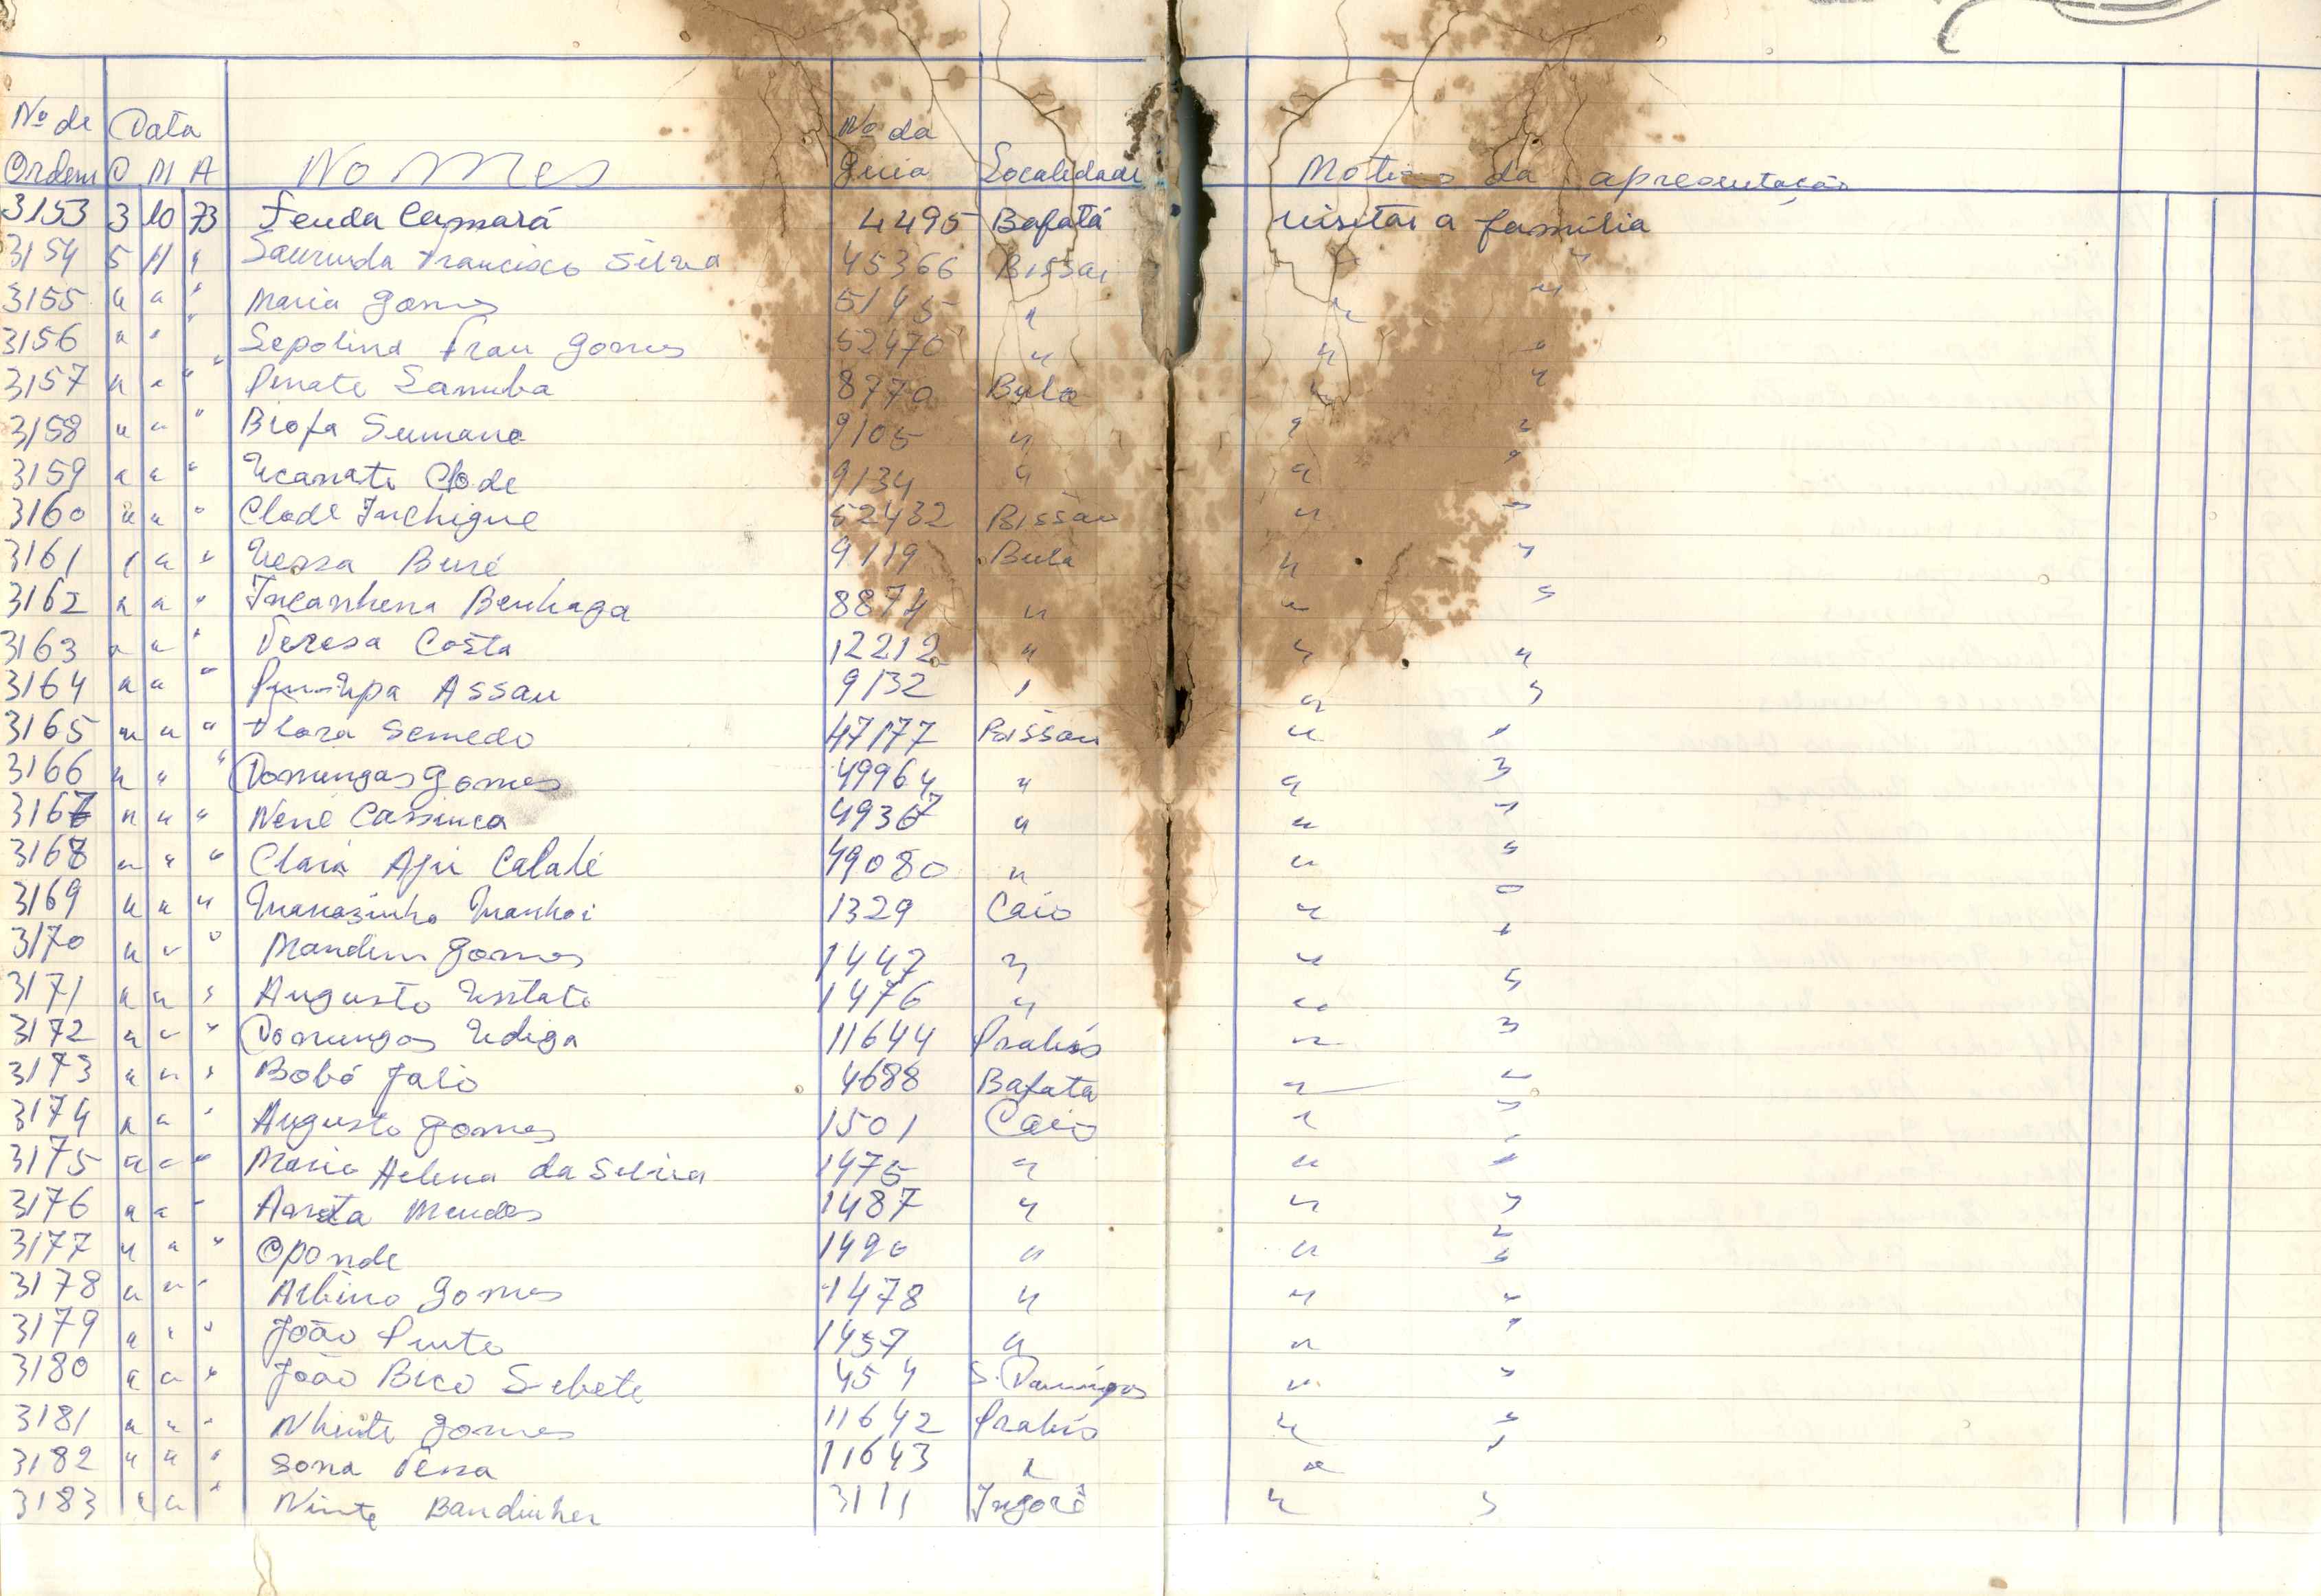 Nº de Data Nº da
Ordem D M A Nomes guia Localidade Motivo da apresentação
3153 3 10 73 Fenda Camará 4495 Bafatá visitar a família
3154 5 11 " Francisco Silva 45366 Bissau " "
3155 " " " Maria Gomes 5145 " " "
3156 " " " Sepolina Fran Gomes 52470 " " "
3157 " " " Pinate Sanuba 8770 Bula " "
3158 " " " Biofa Sumana 9105 " " "
3159 " " " Clode 9134 " " "
3160 " " " Clode Inchigue 52432 Bissau " "
3161 " " " Buré 9119 Bula " "
3162 " " " Incanhena Benhaga 8874 " " "
3163 " " " Teresa Costa 12212 " " "
3164 " " " Assau 9132 " " "
3165 " " " Flora Semedo 47177 Bissau " "
3166 " " " Domingas Gomes 49964 " " "
3167 " " " Nené Cassinca 49367 " " "
3168 " " " Clara Calabé 49080 " " "
3169 " " " 1329 Caio " "
3170 " " " Gomes 1447 " " "
3171 " " " Augusto 1476 " " "
3172 " " " Domingos 11644 Prabis " "
3173 " " " Bobó Jaló 4688 Bafata " "
3174 " " " Augusto Gomes 1501 Caio " "
3175 " " " Maria Helena da Silva 1475 " " "
3176 " " " Mendes 1487 " " "
3177 " " " Oponde 1490 " " "
3178 " " " Albino Gomes 1478 " " "
3179 " " " João Pinto 1457 " " "
3180 " " " João Bico Sebete 454 S. Domingos " "
3181 " " " Nhinte Gomes 11642 Prabis " "
3182 " " " Sona 11643 " " "
3183 " " " Ninte Bandinher 3111 Ingoré " "